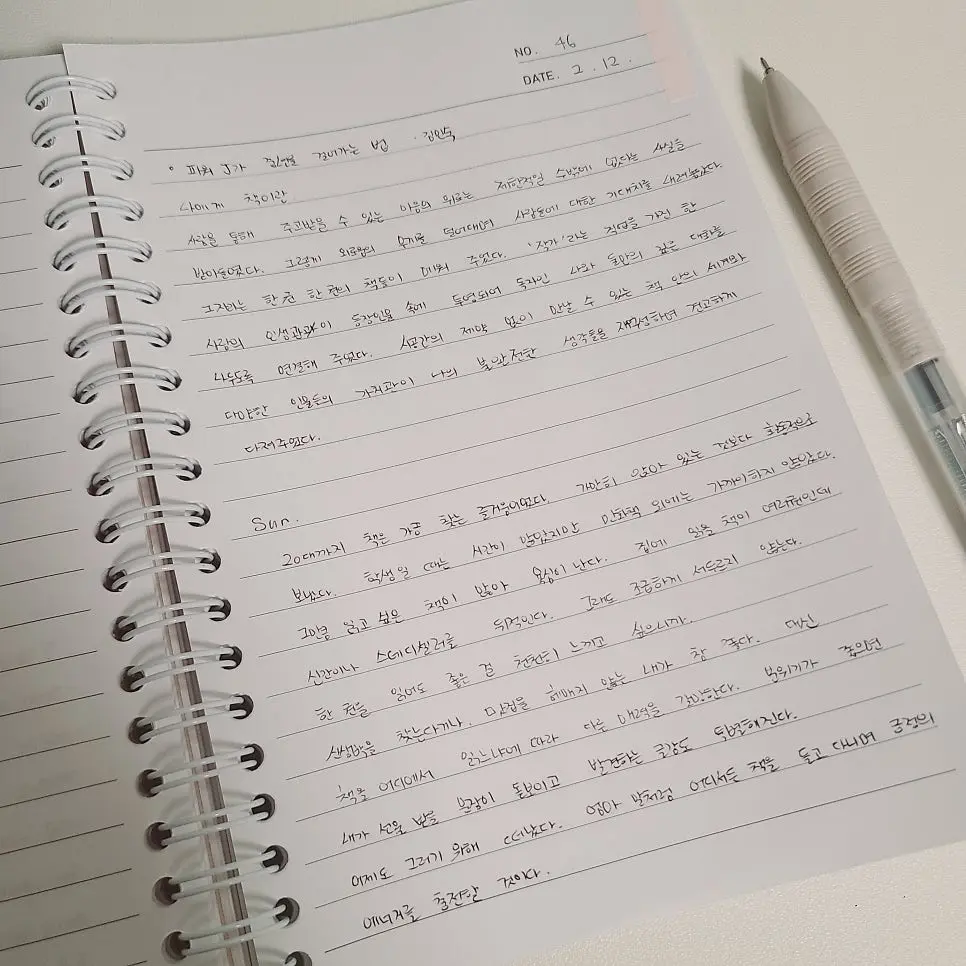 NO. 46
DATE. 2. 12.
• 파워 J가 걸어가는 법 · 김민숙
나에게 책이란
사람을 통해 주고받을 수 있는 마음의 위로는 제한적일 수밖에 없다는 사실을
받아들였다. 그렇게 외로움의 무게를 덜어내며 사람들에 대한 기대치를 내려놓았다.
그 자리는 한 권 한 권의 책들이 메워 주었다. '작가'라는 직업을 가진 한
사람의 인생관과 이 등장인물 속에 투영되어 독자인 나와 둘만의 깊은 대화를
나누도록 연결해 주었다. 시공간의 제약 없이 만날 수 있는 책 안의 세계와
다양한 인물들의 가치관이 나의 불완전한 생각들을 재구성하며 견고하게
다져주었다.
Sun.
20대까지 책은 가끔 찾는 즐거움이었다. 가만히 앉아 있는 것보다 활동적으로
보냈다. 학생일 때는 시간이 많았지만 만화책 외에는 가까이하지 않았다.
그만큼 읽고 싶은 책이 많아 욕심이 난다. 집에 있을 책이 여러권인데
신간이나 스테디셀러를 뒤적인다. 그래도 조급하게 서두르지 않는다.
한 권을 읽어도 좋은 걸 천천히 느끼고 싶으니까.
찾는다거나, 맛집을 헤매지 않는 내가 참 좋다. 대신
책을 어디에서 읽느냐에 따라 다른 매력을 갖는다. 분위기가 좋으면
내가 선을 받을 문장이 돋보이고 발견하는 글감도 특별해진다.
어제도 그러기 위해 떠났다. 엄마 말처럼 어디서든 책을 들고 다니며 긍정의
에너지를 충전할 것이다.